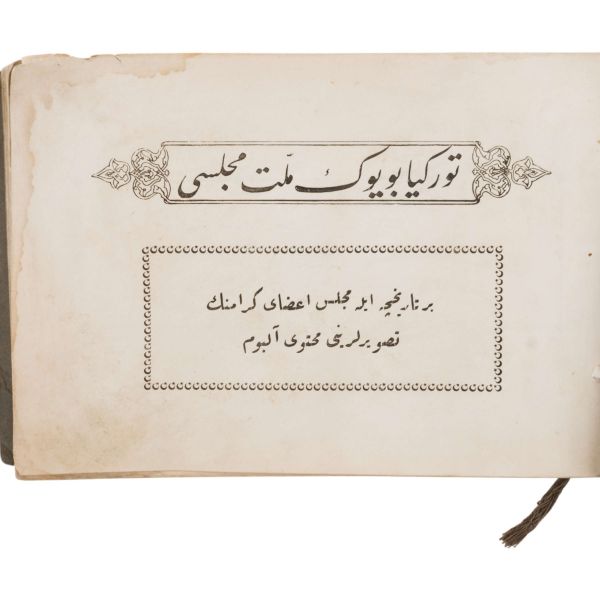 توركيا بويوك ملّت مجلسى
بر تاريخچه ايله مجلس اعضاى كرامنك
تصويرلرينى محتوى آلبوم